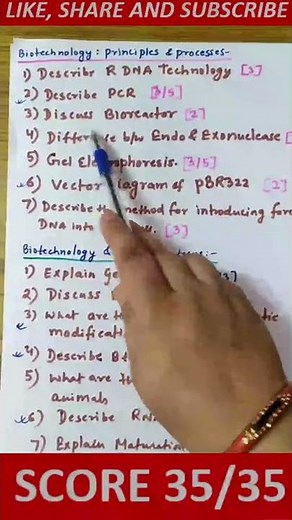 LIKE, SHARE AND SUBSCRIBE
Biotechnology : Principles & processes-
1) Describe R DNA Technology [3]
2) Describe PCR [3/5]
3) Discuss Bioreactor [2]
4) Differ b/w Endo & Exonuclease
5) Gel Electrophoresis. [3/5]
6) Vector diagram of pBR322 [2]
7) Describe the method for introducing
DNA into [3]
Biotechnology &
1) Explain
2) Discuss
3) What are
modificati
4) Describe
5) What are
animals
6) Describe
7) Explain Maturation
SCORE 35/35